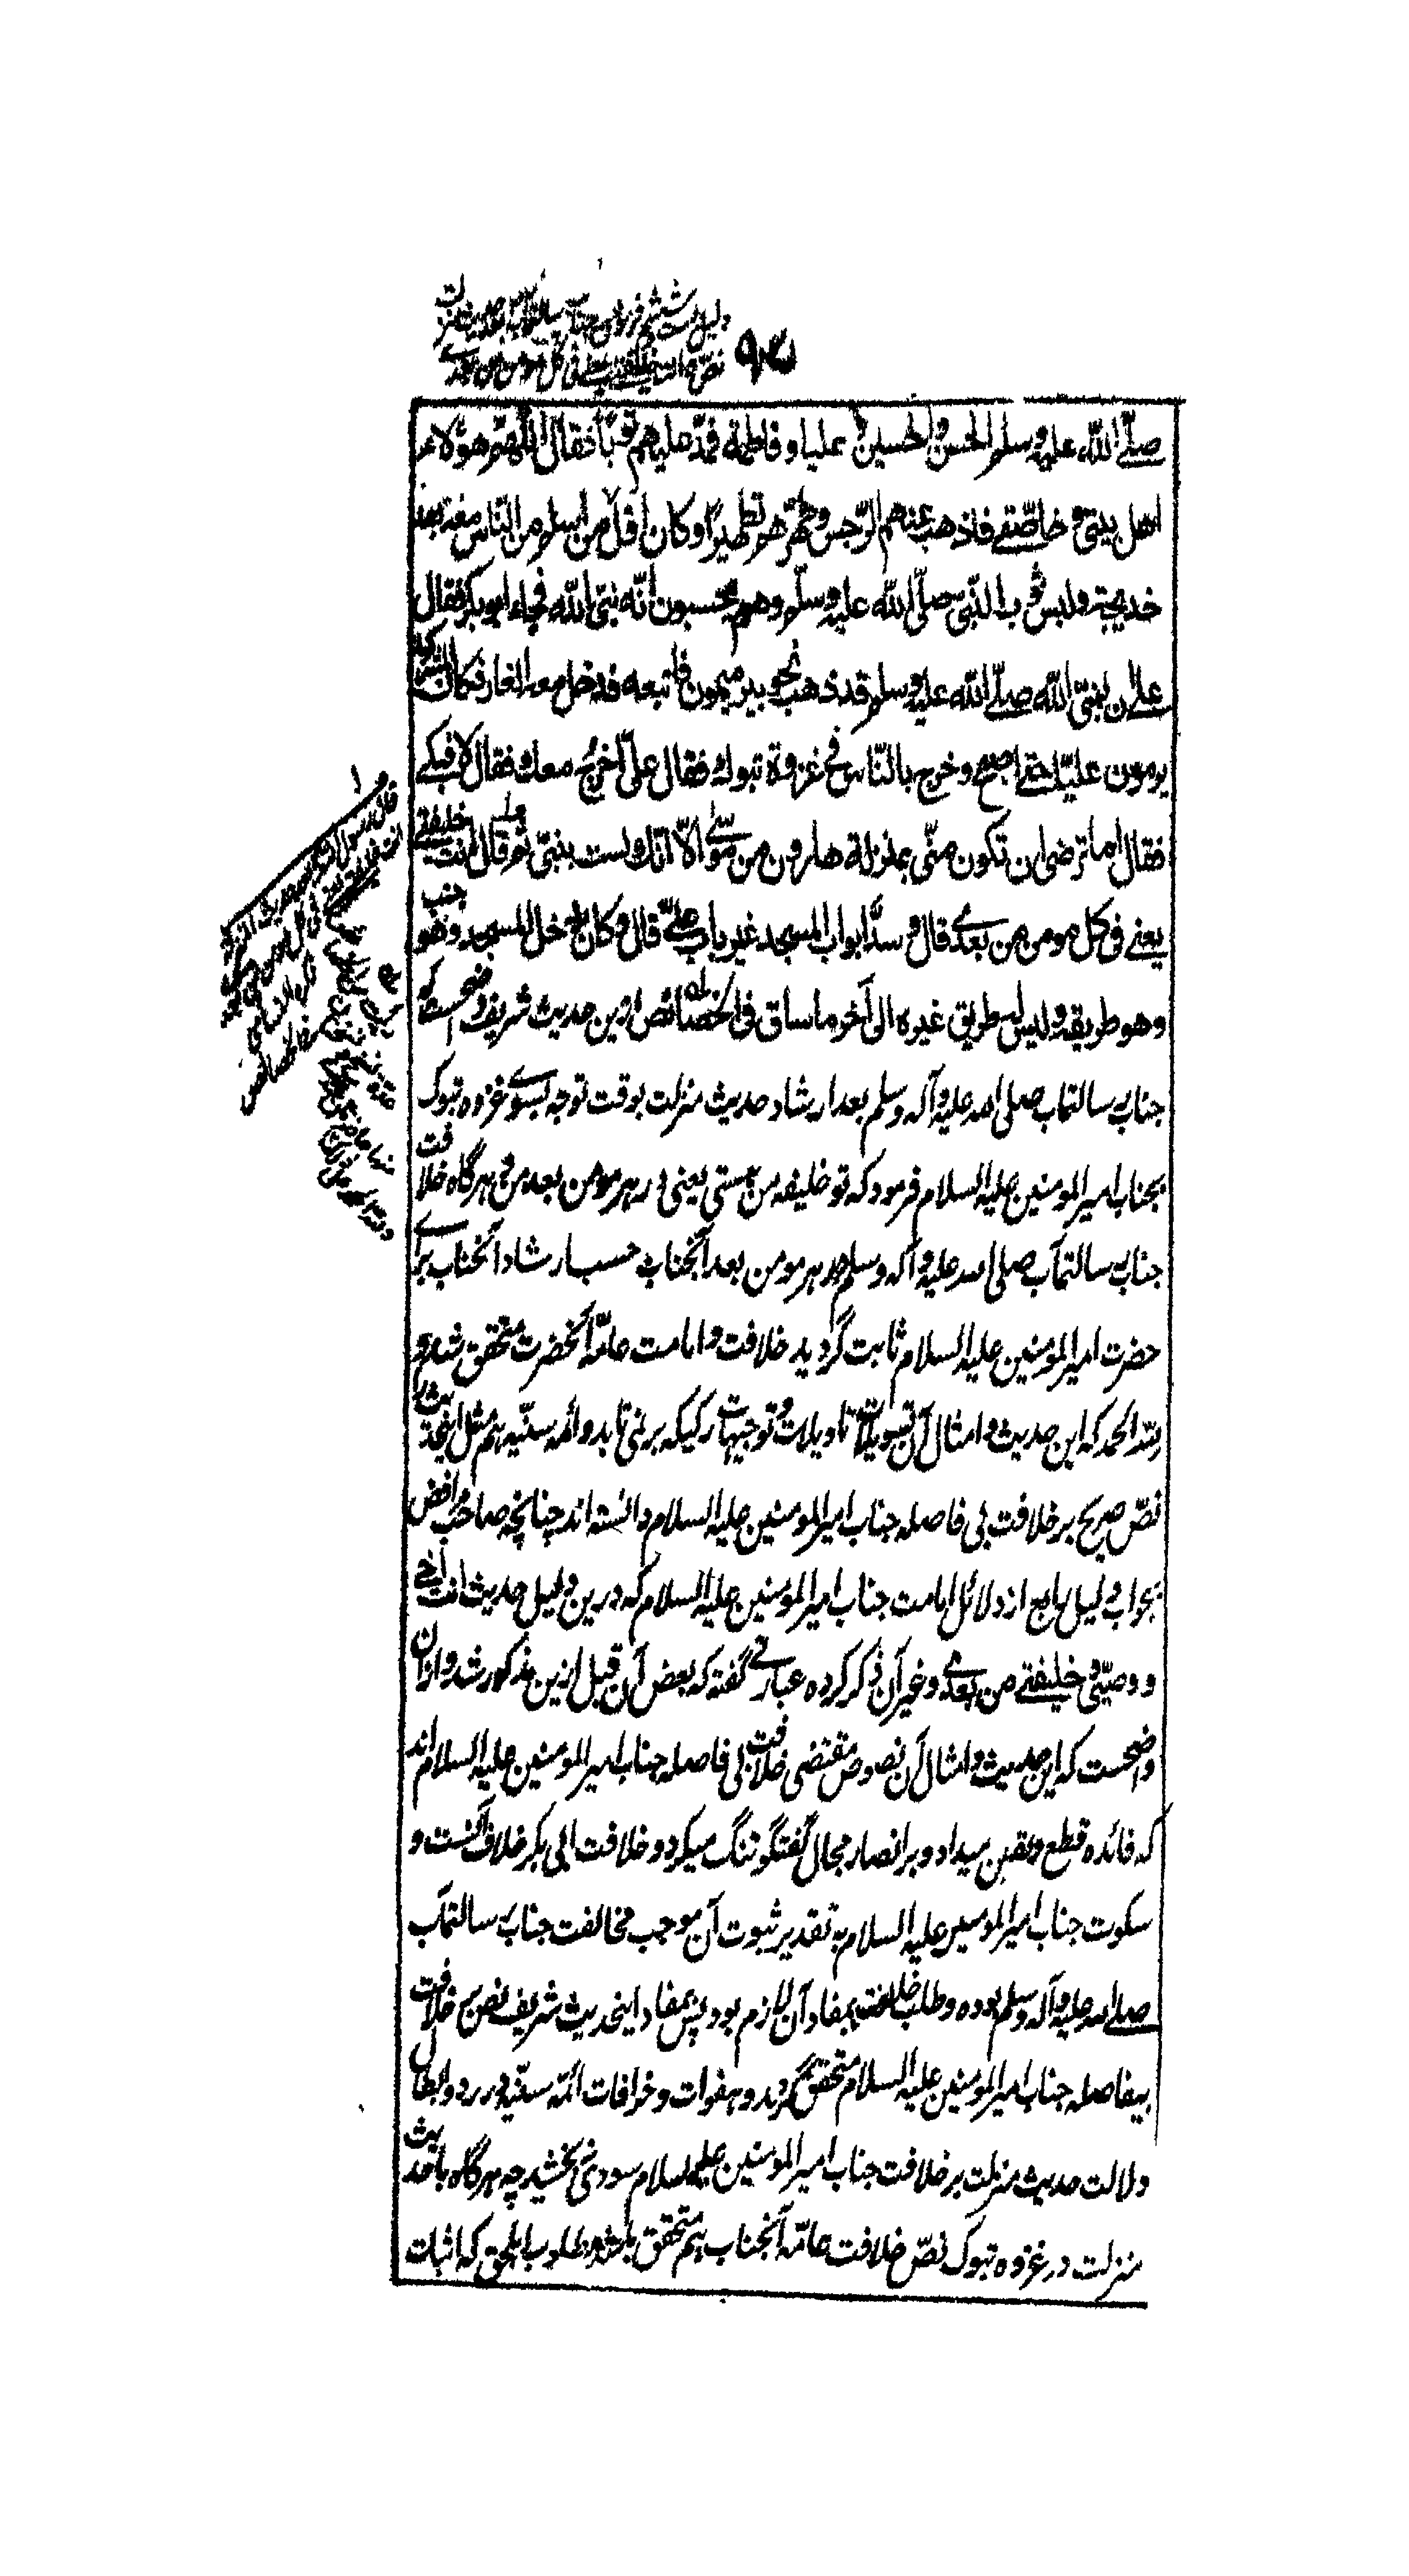 دلیل شصت ششم فرمودن جناب رسالتمآب بعد حدیث منزلت
نص انت خلیفتی یعنی فی کل مؤمن من بعدی
صلّے اللّه علیه وسلم الحسن والحسین وعلیا و فاطمة فمدّ علیهم ثوبًا فقال اللّٰهم هؤلاء
اهل بیتی و خاصّتی فاذهب عنهم الرّجس وطهّرهم تطهیرًا وکان اوّل من اسلم من النّاس معه بعد
خدیجة ولبس ثوب النّبی صلّی اللّه علیه وسلّم وهم یحسبون انّه نبیّ اللّه فجاء ابو بکر فقال
علی ان نبیّ اللّه صلّے اللّه علیه وسلم قد ذهب نحو بیر میمون فاتبعه فدخل معه الغار فکان المشرکون
یرمون علیّا حتی اصبح و خرج بالنّاس فی غزوة تبوك فقال علیّ اخرج معك فقال لا فبکے
فقال اما ترضی ان تکون منّی بمنزلة هارون من موسٰی الّا انك لست بنبیّ ثم قال انت خلیفتے
یعنے فی کل مومن من بعدے قال و سدّ ابواب المسجد غیر باب علیّ قال و کان یدخل المسجد وهو جنب
وهو طریقه و لیس له طریق غیره الی آخر ما ساق فی الخصائص ازین حدیث شریف واضحست که
جناب رسالتمآب صلی الله علیه وآله وسلم بعد ارشاد حدیث منزلت بوقت توجه بسوے غزوه تبوک
بجناب امیر المومنین علیه السلام فرمود که تو خلیفه من هستی یعنی در هر مومن بعد من و هرگاه خلافت
جناب رسالتمآب صلی الله علیه وآله وسلم در هر مومن بعد آنجناب حسب ارشاد آنجناب براے
حضرت امیر المومنین علیه السلام ثابت گردید خلافت و امامت عامّه آنحضرت متحقق شد و
للّه الحمد که این حدیث و امثال آن تسویلات تاویلات و توجیهات رکیکه بر نمی تابد و ائمه سنّیه هم مثل اینحدیث را
نصّ صریح بر خلافت بی فاصله جناب امیر المومنین علیه السلام دانسته اند چنانچه صاحب نواقض
بجواب دلیل رابع از دلائل امامت جناب امیر المومنین علیه السلام که درین دلیل حدیث انت اخی
و وصیّی و خلیفتے من بعدے و غیر آن ذکر کرده عبارتے گفته که بعض آن قبل ازین مذکور شد و ازان
واضحست که این حدیث و امثال آن نصوص مقتضی خلافت بی فاصله جناب امیر المومنین علیه السلام اند
که فائده قطع و یقین میداد و بر انصار مجال گفتگو تنگ میکرد و خلافت ابی بکر خلاف آنست و
سکوت جناب امیر المومنین علیه السلام به تقدیر ثبوت آن موجب مخالفت جناب رسالتمآب
صلے الله علیه وآله وسلم بوده و طلب خلافت بمفاد آن لازم بود پس بمفاد اینحدیث شریف نص بر خلافت
بیفاصله جناب امیر المومنین علیه السلام متحقق گردید و هفوات و خرافات ائمه سنّیه در رد و ابطال
دلالت حدیث منزلت بر خلافت جناب امیر المومنین علیه السلام سودی نبخشید چه هرگاه با حدیث
منزلت در غزوه تبوک نصّ خلافت عامّه آنجناب هم متحقق باشد مطلوب اهل حق که اثبات